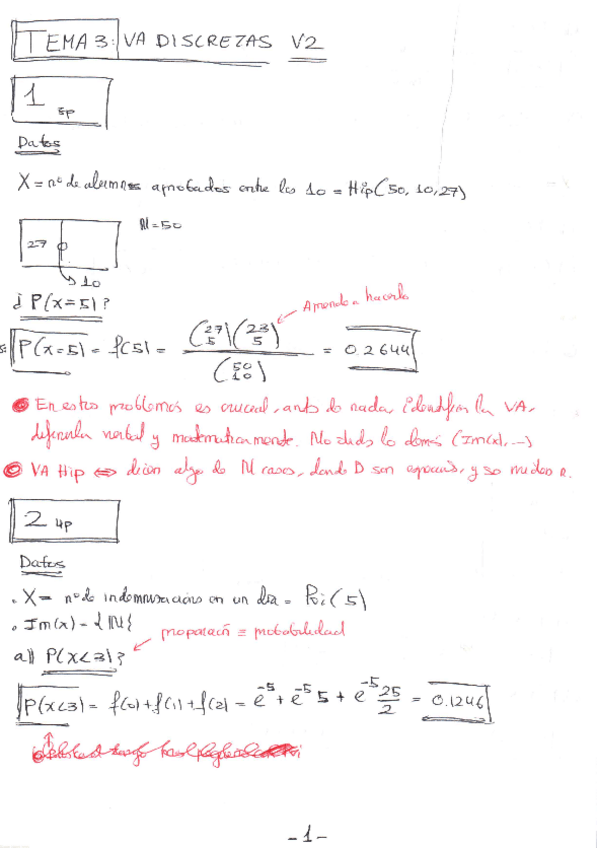 TEMA 3: VA DISCRETAS V2
1 5p
Datos
X = nº de alumnos aprobados entre los 10 = Hip(50, 10, 27)
27
N = 50
10
¿ P(X=5)?
Aprende a hacerlo
P(X=5) = f(5) = (27 5)(23 5) / (50 10) = 0.2644
En estos problemas es crucial, antes de nada, identificar la VA,
definirla verbal y matematicamente. No lo demás (Im(x), ...)
VA Hip ⇔ dicen algo de N casos, donde D son especiais, y se miden n.
2 4p
Datos
. X = nº de indemnizacions en un dia = Poi(5)
. Im(x) = {IN}
proporción ≡ probabilidad
a)) P(X<3)?
P(X<3) = f(0)+f(1)+f(2) = e^-5 + e^-5 5 + e^-5 25/2 = 0.1246
-1-